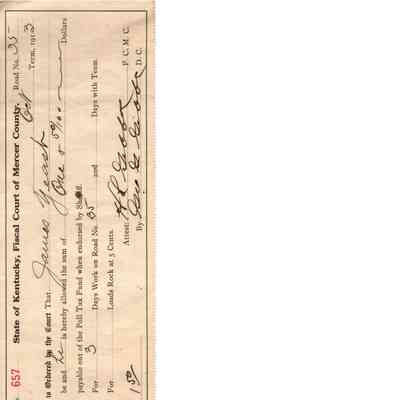 657 State of Kentucky, Fiscal Court of Mercer County. Road No. 35
Oct Term, 1913
is Ordered by the Court That James Yeast
be and he is hereby allowed the sum of One & 50/100 Dollars
payable out of the Poll Tax Fund when endorsed by Sheriff.
For 3 Days Work on Road No. 35 and Days with Team
For Loads Rock at 5 Cents.
Attest: P. C. M. C.
1 50 By D. C.